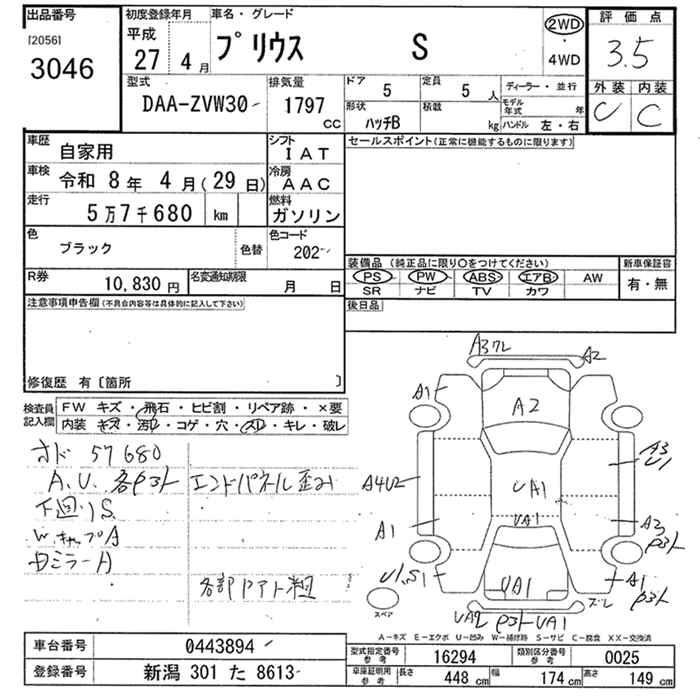 出品番号
[2056]
3046
初度登録年月
平成
27 4月
車名・グレード
プリウス S
2WD
・
4WD
評価点
3.5
外装 内装
C
型式
DAA-ZVW30
排気量
1797
CC
ドア
5
定員
5 人
形状
ハッチB
積載
kg
ディーラー・並行
モデル年式 年
ハンドル 左・右
車歴
自家用
シフト
IAT
車検
令和 8年 4月(29日)
冷房
AAC
走行
5万7千680 km
燃料
ガソリン
色
ブラック
色替
色コード
202
R券
10,830円
名変通知期限
月 日
セールスポイント(正常に機能するものに限ります)
装備品 (純正品に限り○をつけてください)
PS PW ABS エアB AW
SR ナビ TV カワ
新車保証書
有・無
後日品
注意事項申告欄(不具合内容等は具体的に記入して下さい)
修復歴 有〔箇所 〕
検査員記入欄
FW キズ・飛石・ヒビ割・リペア跡・×要
内装 キズ・汚レ・コゲ・穴・スレ・キレ・破レ
オド 57680
A.U. 各P3ト エンドパネル歪み
下廻りS
W.キャップA
Dミラー A
A2
A2
A1
A3
U1
UA1
UA1
A4U2
A1
A3
P3ト
U1.S1
UA1
A1
P3ト
ズレ
UA2 P3ト UA1
スペア
A-キズ E-エクボ U-凹み W-補修跡 S-サビ C-腐食 XX-交換済
車台番号
0443894
登録番号
新潟 301 た 8613
型式指定番号
参考
16294
類別区分番号
参考
0025
車庫証明用
参考
長さ
448 cm
幅
174 cm
高さ
149 cm